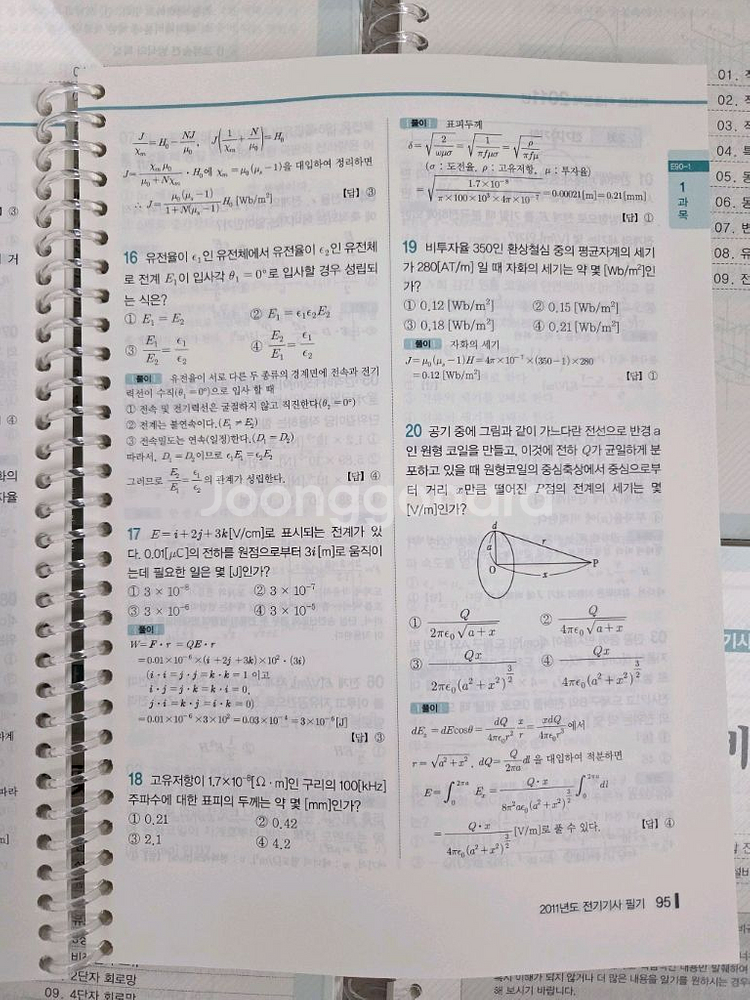 J/χm = H0 − NJ/μ0, J(1/χm + N/μ0) = H0
J = χmμ0/(μ0+Nχm) · H0에 χm = μ0(μs−1)을 대입하여 정리하면
∴ J = μ0(μs−1)/(1+N(μs−1)) H0 [Wb/m²] 【답】③
16 유전율이 ϵ1인 유전체에서 유전율이 ϵ2인 유전체
로 전계 E1이 입사각 θ1 = 0°로 입사할 경우 성립되
는 식은?
① E1 = E2 ② E1 = ϵ1ϵ2E2
③ E1/E2 = ϵ1/ϵ2 ④ E2/E1 = ϵ1/ϵ2
풀이 유전율이 서로 다른 두 종류의 경계면에 전속과 전기
력선이 수직(θ1 = 0°)으로 입사 할 때
① 전속 및 전기력선은 굴절하지 않고 직진한다(θ2 = 0°)
② 전계는 불연속이다.(E1 ≠ E2)
③ 전속밀도는 연속(일정)한다.(D1 = D2)
따라서, D1 = D2이므로 ϵ1E1 = ϵ2E2
그러므로 E2/E1 = ϵ1/ϵ2 의 관계가 성립한다. 【답】④
17 E = i+2j+3k[V/cm]로 표시되는 전계가 있
다. 0.01[μC]의 전하를 원점으로부터 3i[m]로 움직이
는데 필요한 일은 몇 [J]인가?
① 3 × 10⁻⁸ ② 3 × 10⁻⁷
③ 3 × 10⁻⁶ ④ 3 × 10⁻⁵
풀이
W = F · r = QE · r
= 0.01×10⁻⁶×(i+2j+3k)×10² · (3i)
(i · i = j · j = k · k = 1 이고
i · j = j · k = k · i = 0,
j · i = k · j = i · k = 0)
= 0.01×10⁻⁶×3×10² = 0.03×10⁻⁴ = 3×10⁻⁶[J]
【답】③
18 고유저항이 1.7×10⁻⁸[Ω · m]인 구리의 100[kHz]
주파수에 대한 표피의 두께는 약 몇 [mm]인가?
① 0.21 ② 0.42
③ 2.1 ④ 4.2
풀이 표피두께
δ = √(2/ωμσ) = √(1/πfμσ) = √(ρ/πfμ)
(σ : 도전율, ρ : 고유저항, μ : 투자율)
= √(1.7×10⁻⁸/(π×100×10³×4π×10⁻⁷)) = 0.00021[m] = 0.21[mm]
【답】①
19 비투자율 350인 환상철심 중의 평균자계의 세기
가 280[AT/m] 일 때 자화의 세기는 약 몇 [Wb/m²]인
가?
① 0.12 [Wb/m²] ② 0.15 [Wb/m²]
③ 0.18 [Wb/m²] ④ 0.21 [Wb/m²]
풀이 자화의 세기
J = μ0(μs−1)H = 4π×10⁻⁷×(350−1)×280
= 0.12 [Wb/m²] 【답】①
20 공기 중에 그림과 같이 가느다란 전선으로 반경 a
인 원형 코일을 만들고, 이것에 전하 Q가 균일하게 분
포하고 있을 때 원형코일의 중심축상에서 중심으로부
터 거리 x만큼 떨어진 P점의 전계의 세기는 몇
[V/m]인가?
d
a
r
O
x
P
① Q/(2πϵ0√(a+x)) ② Q/(4πϵ0√(a+x))
③ Qx/(2πϵ0(a²+x²)^(3/2)) ④ Qx/(4πϵ0(a²+x²)^(3/2))
풀이
dEx = dEcosθ = dQ/(4πϵ0r²) · x/r = xdQ/(4πϵ0r³) 에서
r = √(a²+x²), dQ = Q/(2πa) dl 을 대입하여 적분하면
E = ∫₀^(2πa) Ex = Q·x/(8π²aϵ0(a²+x²)^(3/2)) ∫₀^(2πa) dl
= Q·x/(4πϵ0(a²+x²)^(3/2)) [V/m]로 풀 수 있다. 【답】④
2011년도 전기기사 필기 95
E90-1
1
과
목
Joonggonara
01.
02.
03.
04.
05.
06.
07.
08.
09.
2단자 회로망
09. 4단자 회로망
해 보시기 바랍니다.